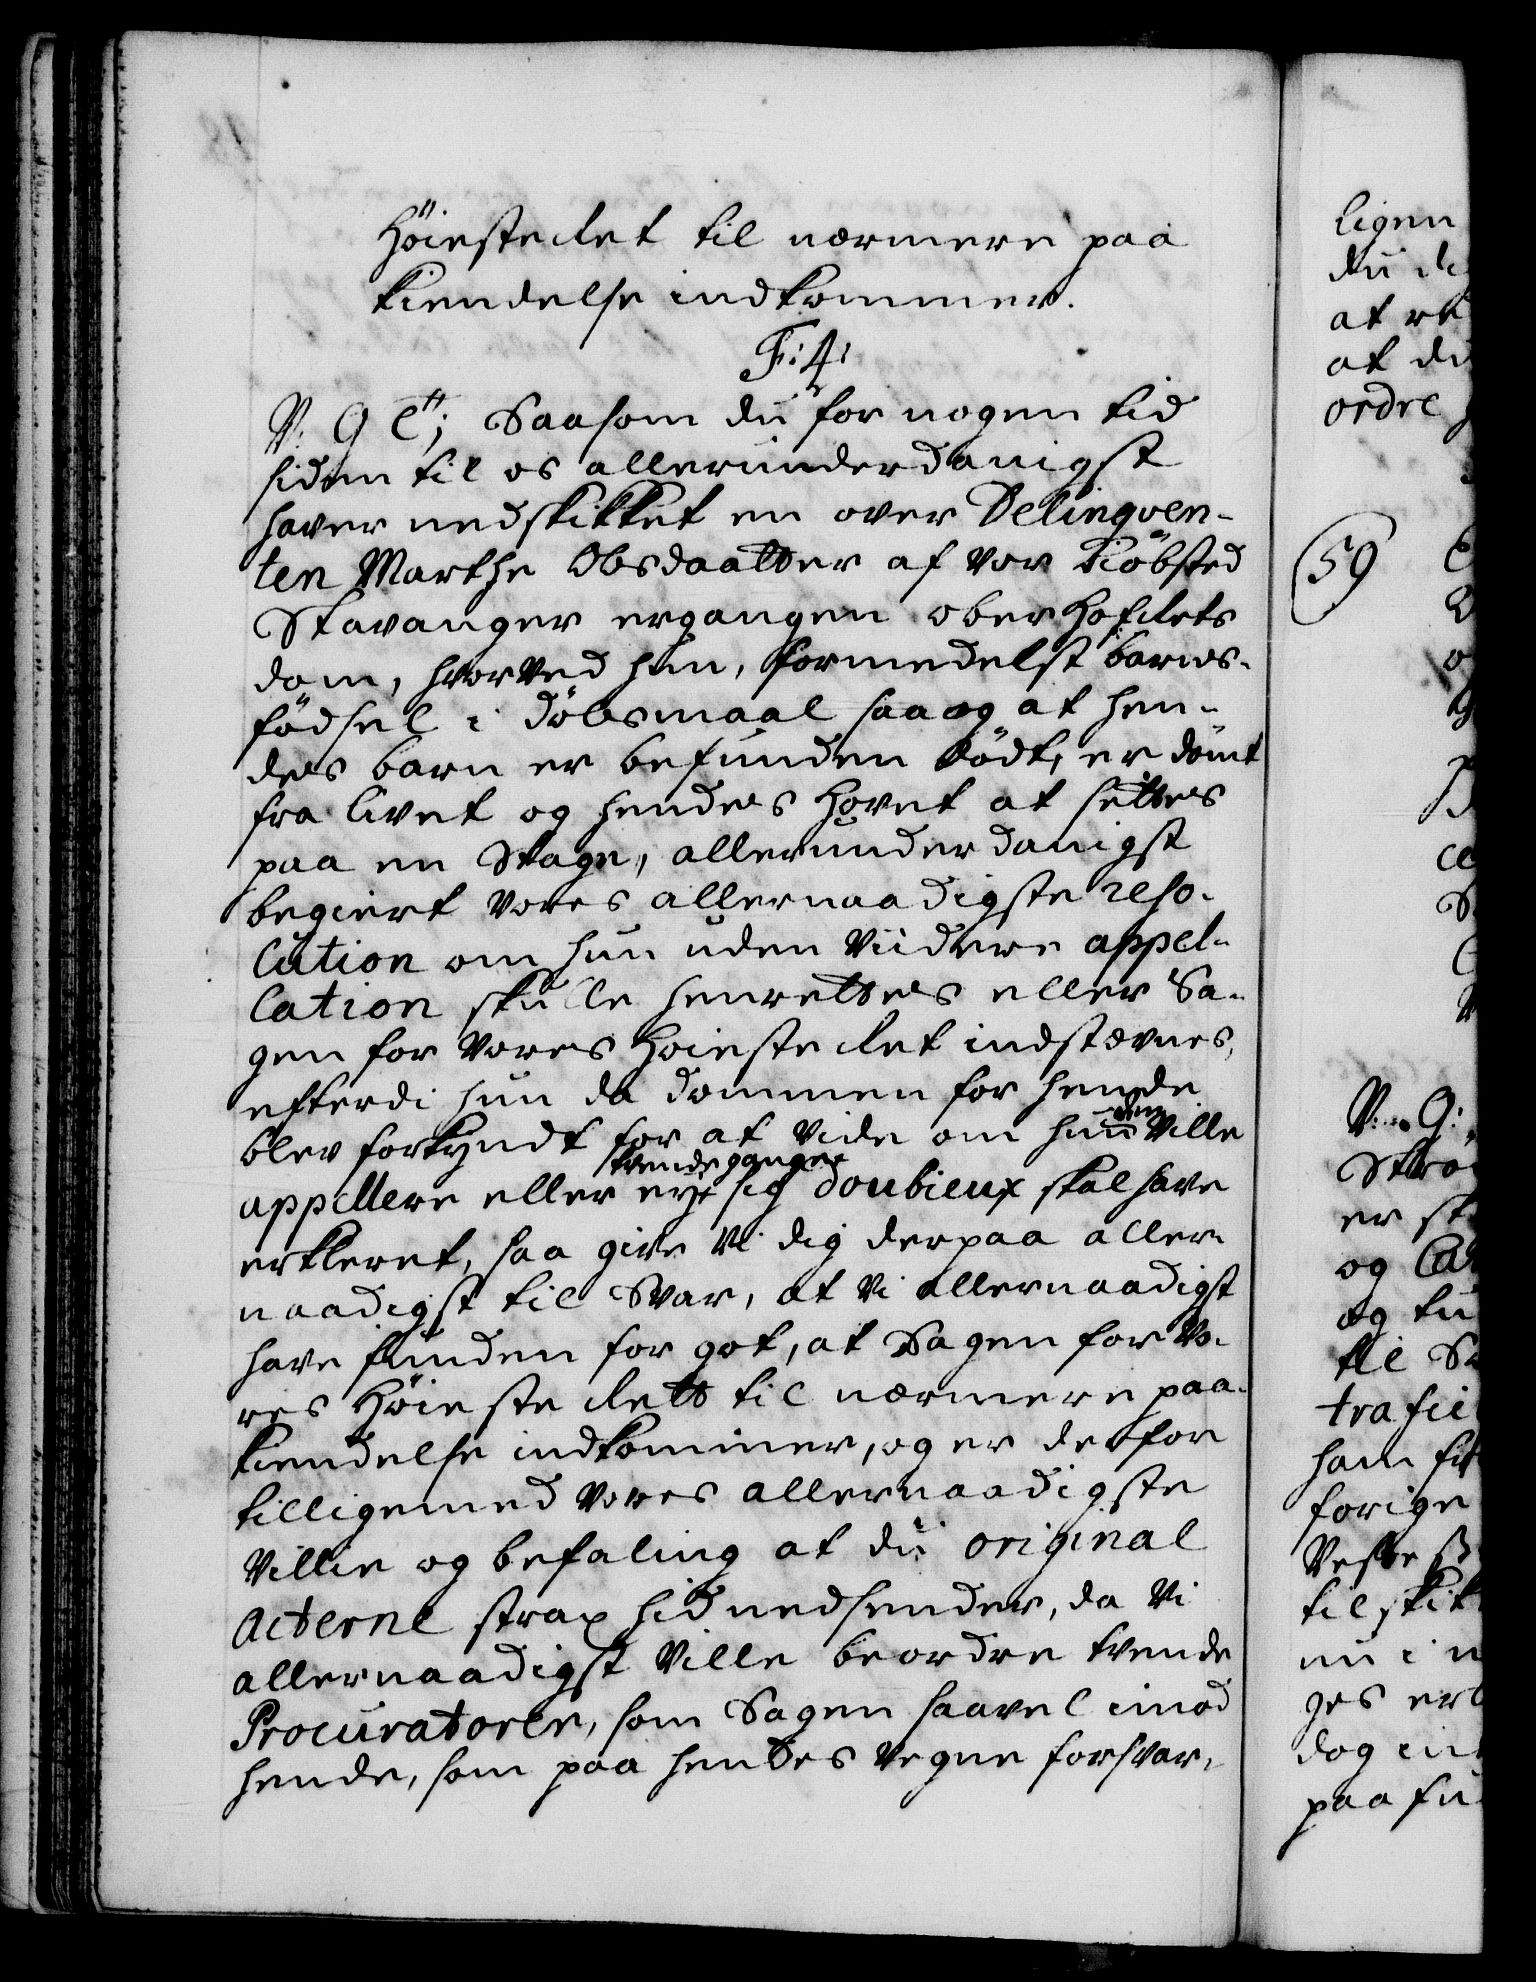 Höiesteræt til nærmere paa
kiendelse indkommer.
F: 4:
V: G Et; Saasom du for nogen tid
siden til os allerunderdanigst
haver nedskikket en over Delinqven-
ten Marthe Olsdaatter af vor Kiöbsted
Stavanger ergangen ober Hofrets
dom, hvorved hun, formedelst barns-
födsel i dölsmaal saa og at hen-
des barn er befunden dödt, er dömt
fra livet og hendes Hovet at settes
paa en Stage, allerunderdanigst
begiert Vores allernaadigste reso-
lution om hun uden Viidere appel-
lation skulle henrettes eller Sa-
gen for Vores Höiesteræt indstævnes,
efterdi hun da dommen for hende
blev forkyndt for at vide om hun den Ville
appellere eller ey, trende gange sig doubieux skal have
erkleret, saa give Vi dig derpaa aller-
naadigst til Svar, at Vi allernaadigst
have funden for got, at Sagen for Vo-
res Höiesterett til nærmere paa-
kiendelse indkommer, og er derfor
tilligemed Vores allernaadigste
Villie og befaling at du original
Acterne strax hid nedsender, da Vi
allernaadigst Ville beordre tvende
Procuratorer, som Sagen saavel imod
hende, som paa hendes Vegne forsvar-
ligen
at
at du
ordre
59
V: G:
er
og
og
til
trafi
ham
forige
til skik
nu i
ges
dog
paa